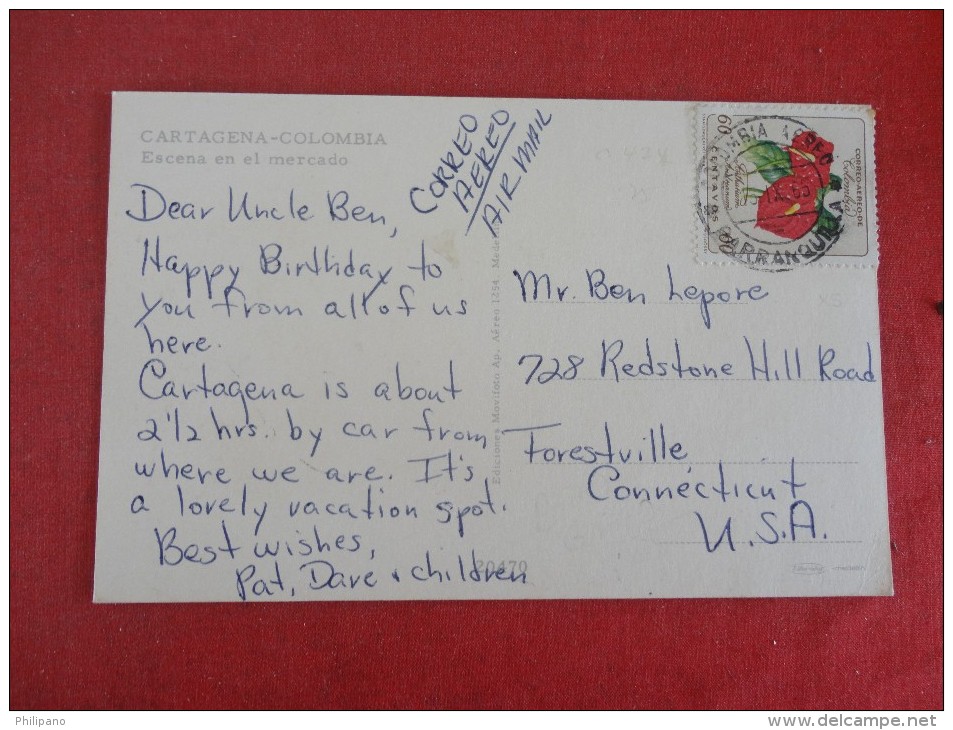 CARTAGENA-COLOMBIA
Escena en el mercado
CORREO
AEREO
AIR MAIL
Dear Uncle Ben,
Happy Birthday to
you from all of us
here.
Cartagena is about
2 1/2 hrs. by car from
where we are. It's
a lovely vacation spot.
Best wishes,
Pat, Dave + children
Ediciones Movifoto Ap. Aéreo 1254
20470
60
CENTAVOS
CORREO AEREO DE
Colombia
60
BARRANQUILLA
Mr. Ben Lepore
728 Redstone Hill Road
Forestville
Connecticut
U.S.A.
Philipano
www.delcampe.net